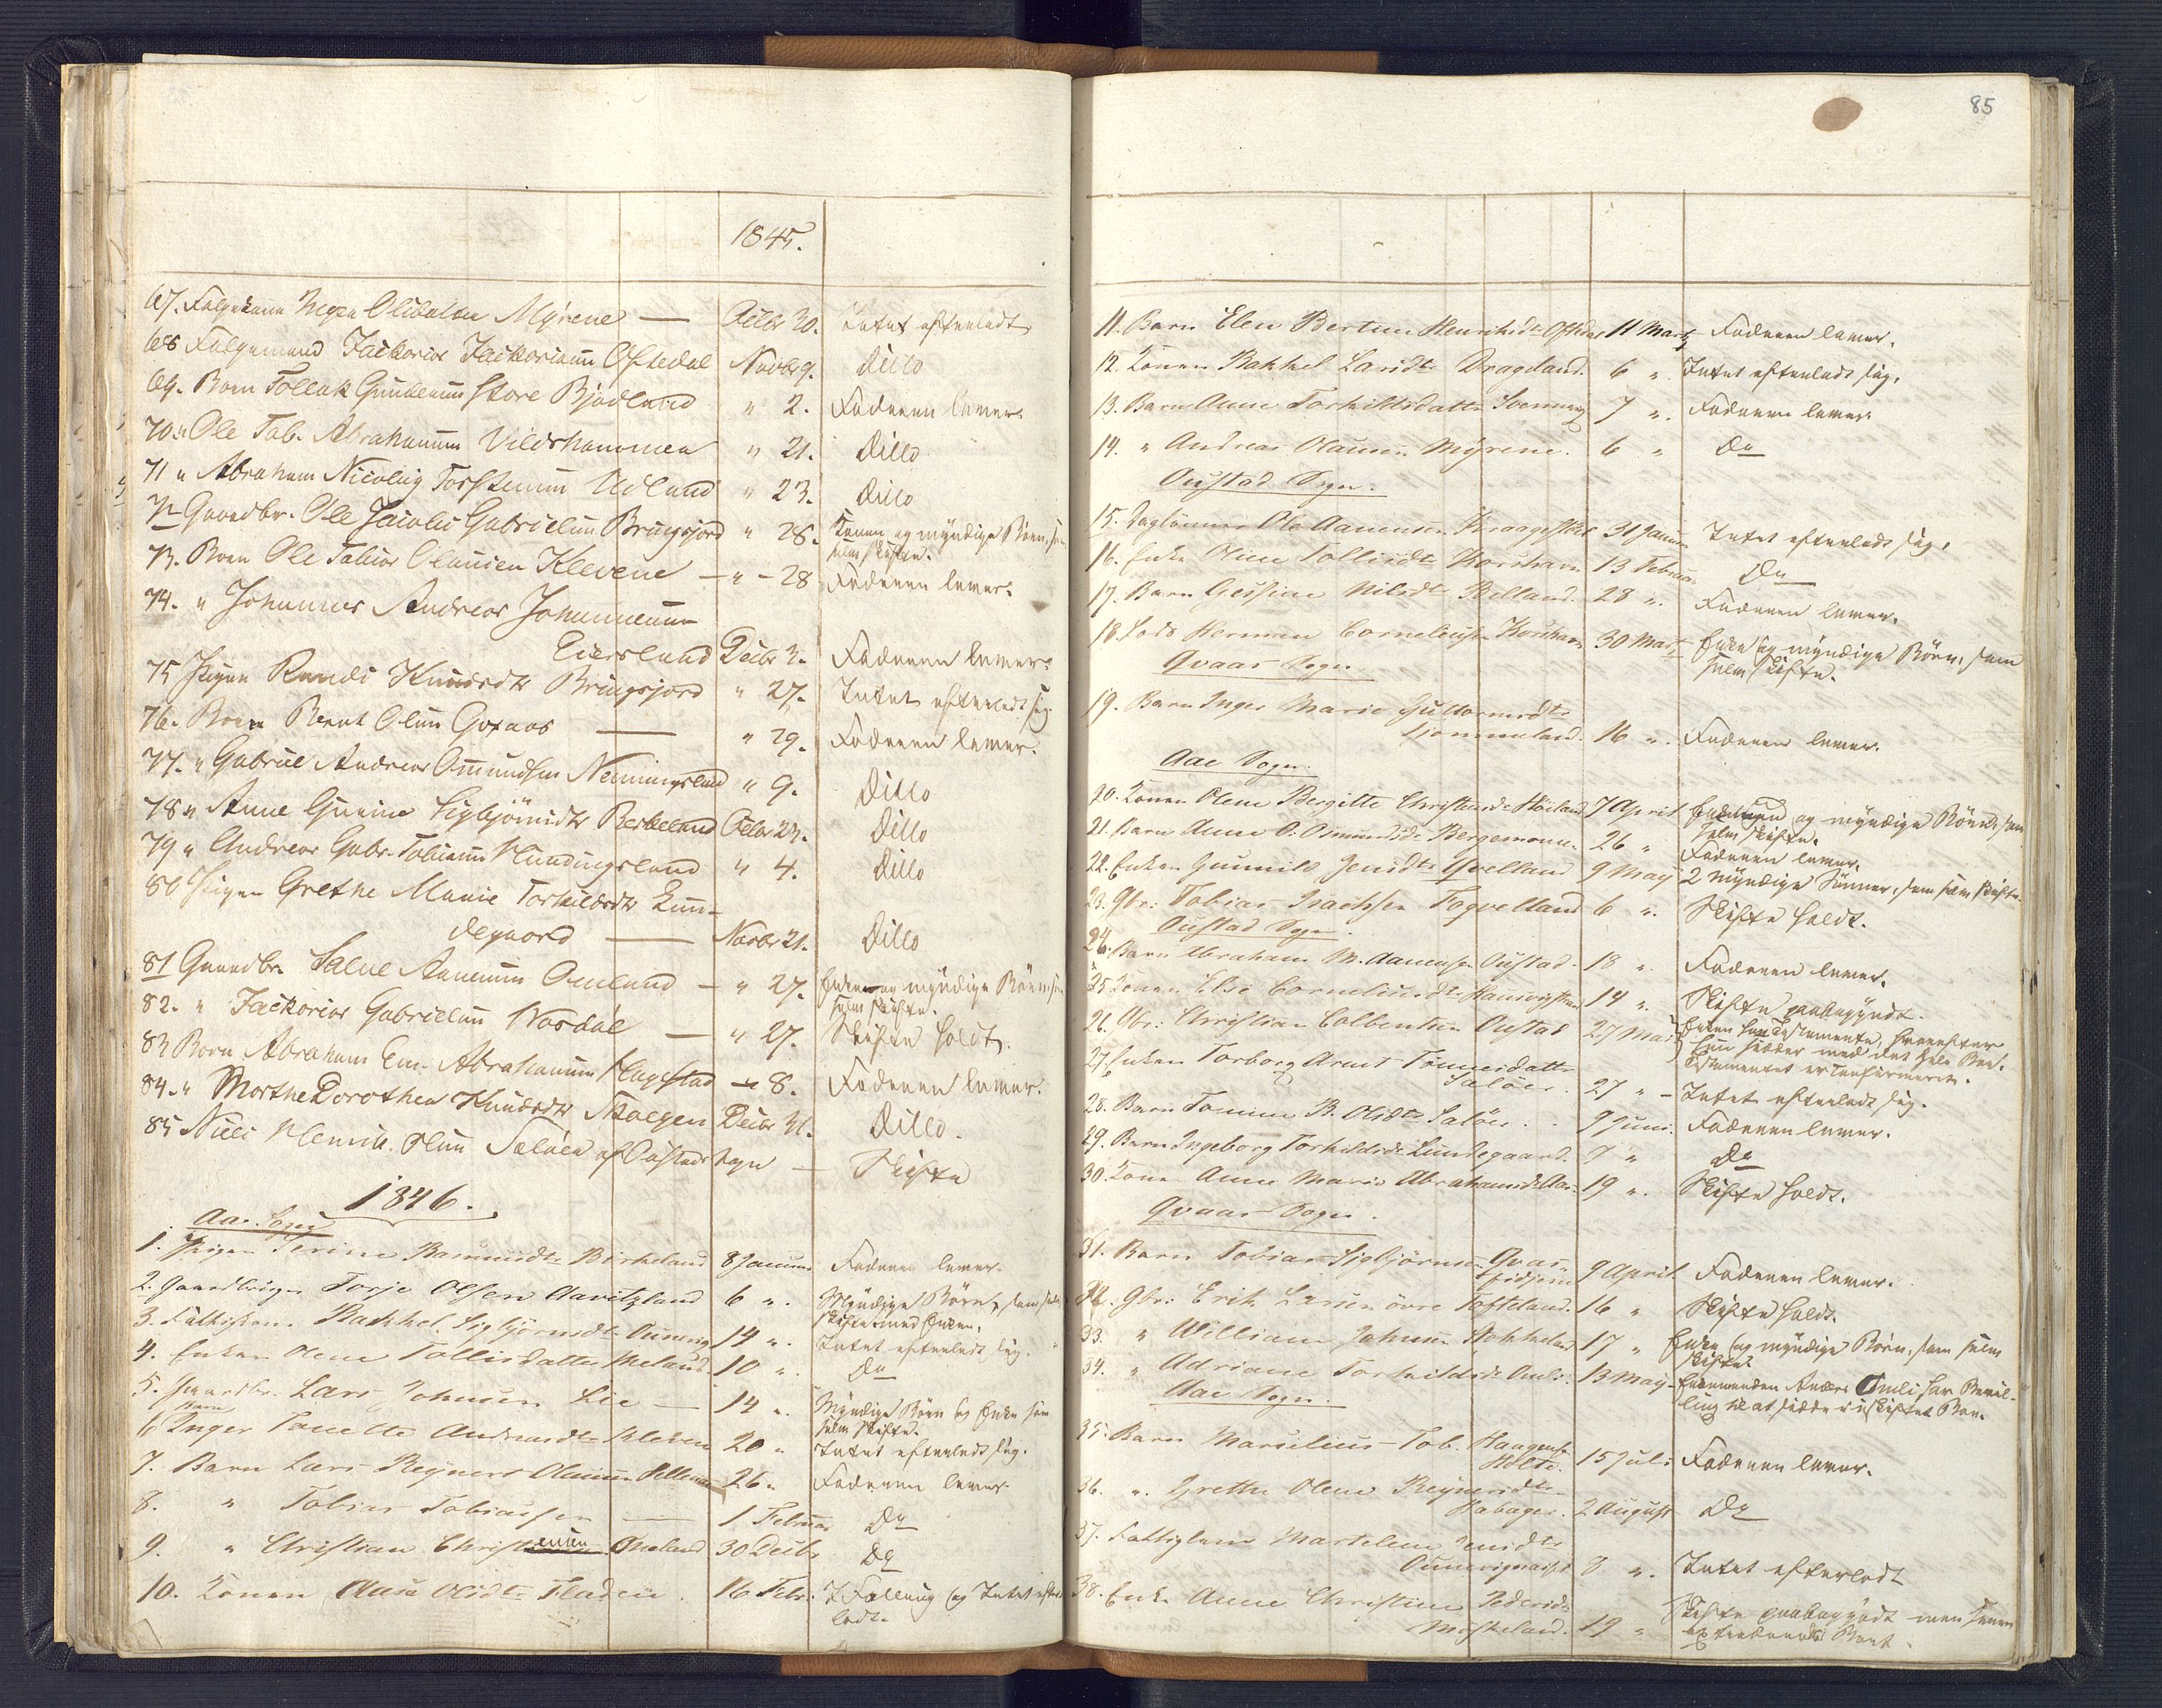 1845.
67. Følgekone Inger Olsdatter Myrene — Octbr 30. Intet efterladt
68 Følgemand Zackarias Zackariassen Oftedal Novbr 9. Ditto
69. Barn Tollak Gundersen Store Bjødland " 2. Faderen lever.
70. " Ole Tob. Abrahamsen Vildshammen " 21. Ditto
71 " Abraham Nicolay Torstensen Udland " 23. Ditto
72 Gaardbr. Ole Jacob Gabrielsen Bringsjord " 28. Konen og myndige Børn, som
selv skifte.
73. Barn Ole Tobias Olausen Klevene — " - 28 Faderen lever.
74. " Johannes Andreas Johannesen
Eiersland Decbr 3. Faderen lever.
75 Pigen Randi Knudsdtr Bringsjord " 27. Intet efterladt sig
76. Barn Bernt Olsen Goxaas — " 29. Faderen lever.
77. " Gabriel Andreas Omundsen Nenningsland " 9. Ditto
78 " Anne Gurine Sigbjörnsdtr Berkeland Octbr 23. Ditto
79 " Andreas Gabr. Tobiassen Hundingsland " 4. Ditto
80 Pigen Grethe Marie Torkildsdtr Lun-
degaard — Novbr 21. Ditto
81 Gaardbr. Salve Aanensen Omland — " 27. Enke og myndige Børn, som
selv skifte.
82. " Zackarias Gabrielsen Nordal — " 27. Skifte holdt.
83 Barn Abraham Em. Abrahamsen Haugstad — 8. Faderen lever.
84. " Morthe Dorothea Knudsdtr Skoegen Decbr 31. Ditto.
85 Niels Henrik Olsen Sæløen af Oustad Sogn — Skifte
1846.
Aae Sogn
1. Pigen Serine Bernsdtr Birkeland 8 Januar Faderen lever.
2. Gaardbruger Torje Olsen Aavitzland 6 ". Myndige Børn, som selv
skifte med Enken.
3. Fattigkone Rakkel Sigbjørnsdtr 14 ". Intet efterladt sig.
4. Enken Olene Tollisdatter Meland 10 ". Do
5. Gaardbr. Lars Johnsen Lie — 14 ". Myndige Børn og Enke som
selv skifte.
6 Barn Inger Tonette Andreasdtr Kleven 20 " Intet efterladt sig.
7. Barn Lars Reyners Olausen 26 " Faderen lever
8. " Tobias Tobiassen — 1 Februar Do
9. " Christian Christensen Omland 30 Decbr Do
10. Konen Aase Olsdtr Fladen 16 Febr. I Fællig og Intet efter-
ladt.
85
11. Barn Elen Bertine Henriksdtr Oftedal 11 Marts Faderen lever.
12. Konen Rakkel Larsdtr Drageland. 6 ". Intet efterladt sig.
13. Barn Anne Torkildsdatter Svenning 7 ". Faderen lever.
14. " Andreas Olausen Myrene. 6 " Do
Oustad Sogn.
15. Daglønner Ole Aanensen 31 Januar Intet efterladt sig.
16. Enke Oline Tollisdtr Korshavn 13 Februar Do
17. Barn Gessine Nilsdtr Kelland. 28 ". Faderen lever.
18. Lods Herman Corneliusen Korshavn 30 Marts Enke og myndige Børn, som
selv skifte.
Qvaas Sogn
19. Barn Inger Marie Guttormsdtr
16 ". Faderen lever.
Aae Sogn.
20. Konen Olene Bergitte Christensdtr Høiland 7 April Enkemand og myndige Børn, som
selv skifte.
21. Barn Anne O. Osmundsdtr Bergemoene 26 " Faderen lever.
22. Enken Gunnild Jensdtr Qvelland 9 May 2 myndige Sønner, som selv skifte.
23. Gbr: Tobias Isachsen Fogvelland 6 ". Skifte holdt.
Oustad Sogn.
24. Barn Abraham M. Aanensen Oustad. 18 ". Faderen lever.
25 Konen Else Corneliusdtr 14 ". Skifte paabegyndt.
26. Gbr: Christian Colbentsen Oustad 27 Mai Enken har Testamente, hvorefter
hun sidder med det hele Boe.
Testamentet er confirmeret.
27. Enken Torborg Arnt Tønnesdatter
Saløer. 27 " — Intet efterladt sig.
28. Barn Tomine B. Olsdtr Saløer. . 9 Juni. Faderen lever.
29. Barn Ingeborg Torkildsdtr Lundegaard. 7 " Do
30. Kone Anne Marie Abrahamsdtr 19 ". Skifte holdt.
Qvaas Sogn.
31. Barn Tobias Sigbjørnsen Qvaas-
9 April Faderen lever.
32. Gbr: Erik Larsen övre Tofteland. 16 " Skifte holdt.
33. " William Johnsen 17 " Enke og myndige Børn, som selv
skifte.
34. " Adriane Torkildsdtr Omli. 13 May — Enkemanden Anders Omli har Bevil-
ling til at sidde i uskiftet Boe.
Aae Sogn.
35. Barn Marselius Tob. Haagensen
Holte. 15 Juli Faderen lever.
36. ". Grethe Olene Reyersdtr
Habager. 2 August Do
37. Fattiglem Martelene Jensdtr
8 ". Intet efterladt
38. Enke Anne Christine Pedersdtr
Møskeland. 19 " Skifte paabegyndt men senere
extraderet Boet.